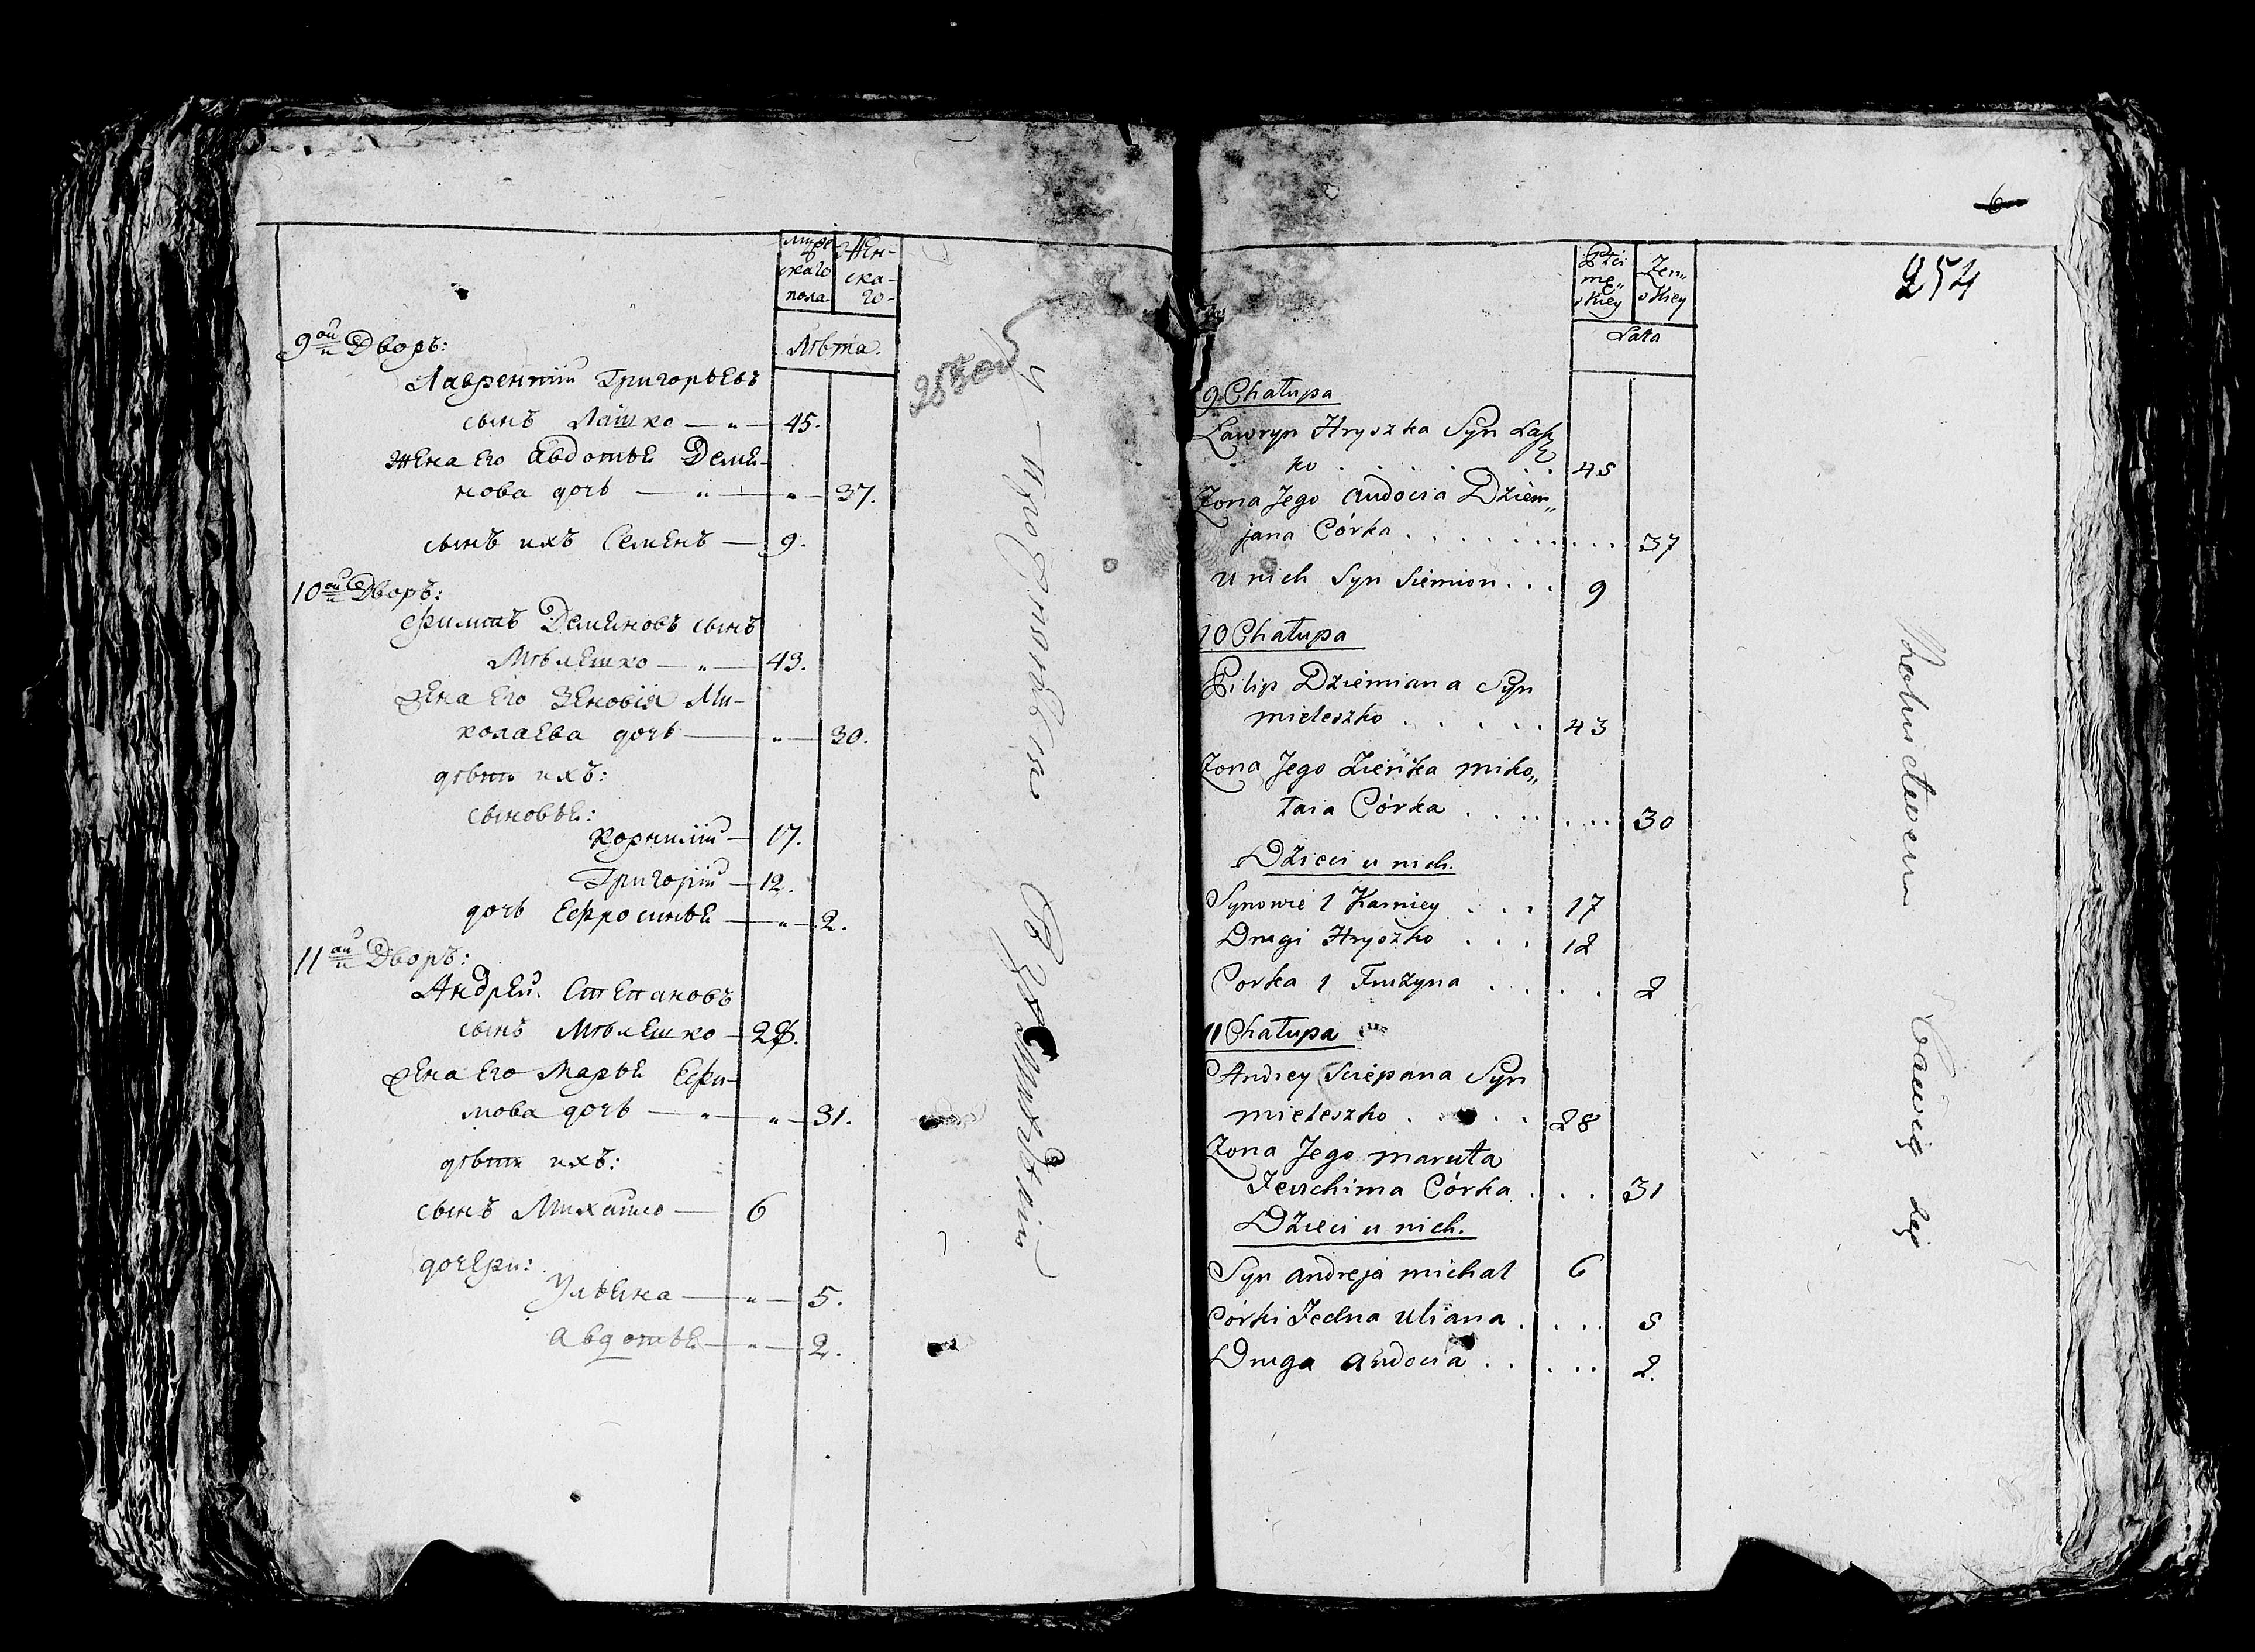 муже
скаго
пола
Жен-
ска-
го-
Лѣта.
9ой Дворъ:
Лаврентій Григорьевъ
сынъ Лашко — " — 45.
Жена его Авдотья Демя-
нова дочь — " — " — 37.
сынъ ихъ Семенъ — 9.
10ой Дворъ:
Филипъ Демяновъ сынъ
Мѣлешко — " — 43.
Жена его Зеновія Ми-
колаева дочь — " — 30.
дѣти ихъ:
сыновья:
Корнилій — 17.
Григорій — 12.
дочь Ефросинья — " — 2.
11ой Дворъ:
Андрей Степановъ
сынъ Мѣлешко — 28.
Жена его Марья Ефи-
мова дочь — " — " — 31.
дѣти ихъ:
сынъ Михайло — 6
дочери:
Ульяна — " — 5.
Авдотья — " — 2.
6
254
Płci
mę„
skiey
Żen„
skiey
Lata
9 Chałupa
Ławryn Hryszka Syn Łasz
ko . . . . . . . 45
Żona Jego Audocia Dziem„
jana Córka . . . . . . . . . 37
U nich Syn Siemion . . . 9
10 Chałupa
Filip Dziemiana Syn
mieleszko . . . . . 43
Żona Jego Zieńka miko„
łaia Córka . . . . . . . 30
Dzieci u nich.
Synowie 1 Karniey . . . 17
Drugi Hryszko . . . 12
Corka 1 Fruzyna . . . . 2
11 Chałupa
Andrey Sciepana Syn
mieleszko . . . . 28
Żona Jego maruta
Jeuchima Córka . . . 31
Dzieci u nich.
Syn andreja michał 6
Córki Jedna Uliana . . . . 5
Druga Audocia . . . . . 2.